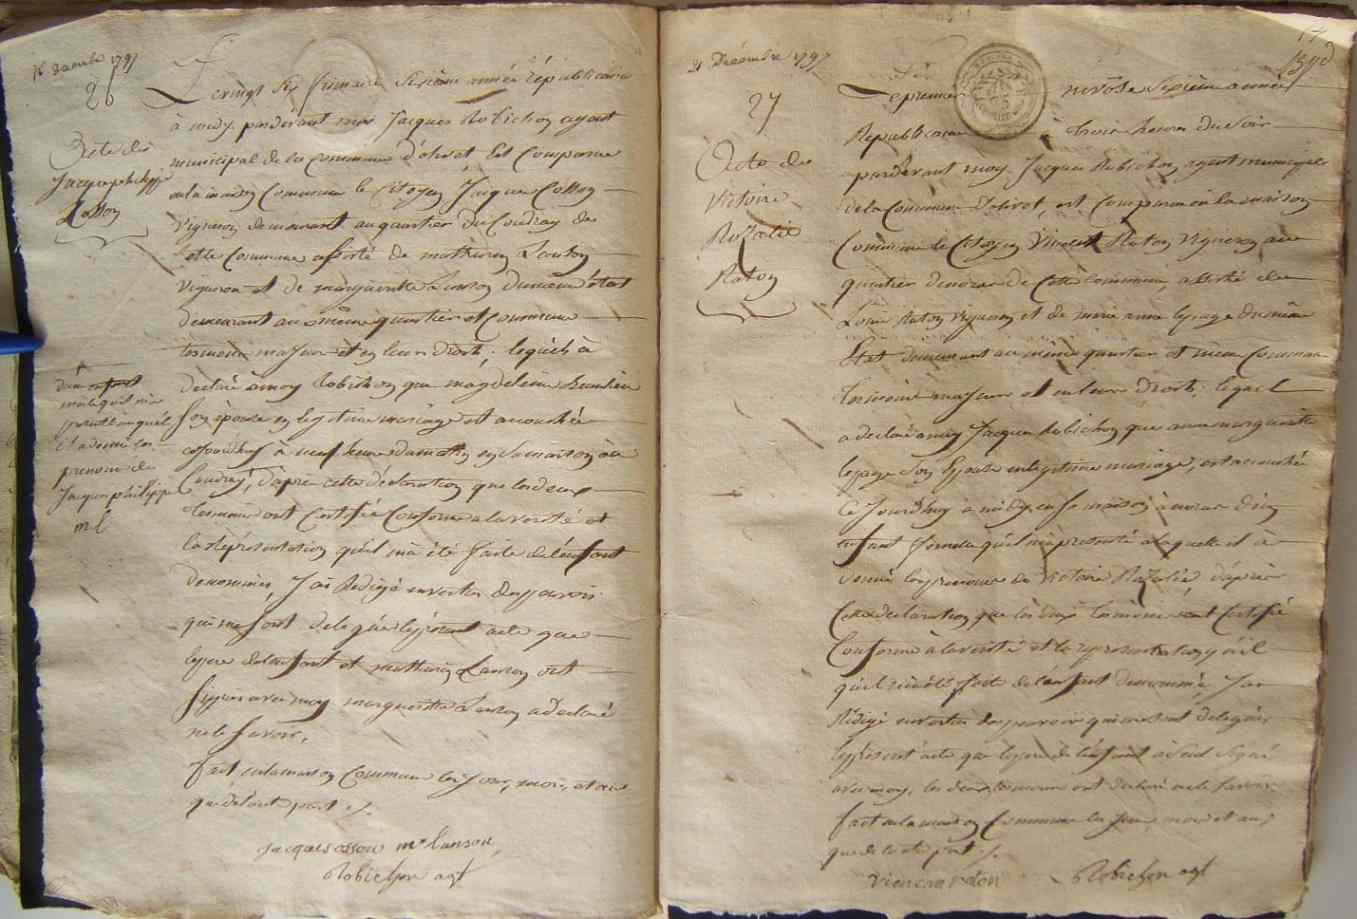 16 decembre 1797
26
Acte de
Jacque philippe
Cosson
Le vingt six frimaire sixieme année républicaine
à midy pardevant moy Jacques Robichon agent
municipal de la Commune d'olivet Est Comparue
en la maison Commune le citoyen Jacque Cosson
vigneron demeurant au quartier du Coudray de
cette Commune assisté de mathurin Lanson
vigneron et de marguerite Lanson du meme état
demeurant au même quartier et Commune
temoins majeur et en leur droits, lequel à
declaré à moy Robichon que magdeleine
son épouse en legitime mariage est accouchée
à neuf heure du matin en sa maison au
Coudray, d'après cette déclaration que les deux
temoins ont Certifié Conforme à la verité et
la représentation qu'il m'a été faite de l'enfant
denommé, J'ai Rédigé en vertu des pouvoirs
qui me sont delegués le present acte que
le pere de l'enfant et mathurin Lanson ont
signer avec moy marguerite Lanson a declaré
ne le savoir.
fait en la maison Commune les jour, mois, et an
que de l'autre part ./.
Jacque cosson m Lanson
Robichon agt
d'un enfant
male qu'il m'a
presenté auquel
il a donné les
prenoms de
Jacque philippe
21 Décembre 1797
27
Acte de
Victoire
Rozalie
Raton
Le premier nivôse Sixième année
Republicaine à trois heures du soir
pardevant moy Jacques Robichon agent municipal
de la Commune d'olivet, est Comparu en la maison
Commune le Citoyen Vincent Raton vigneron au
quartier de cette Commune assisté de
Louis Raton vigneron et de marie anne lepage du même
Etat demeurant au même quartier et même Commune
temoins majeur et en leur droits; lequel
a declaré à moy Jacque Robichon que anne marguerite
lepage son Epouse en legitime mariage, est accouchée
ce Jourd'huy à midy en sa maison d'un
enfant femelle qu'il m'a presenté à laquelle il a
donné les prenoms de Victoire Rozalie, d'après
Cette declaration que les deux temoins ont Certifié
Conforme à la verité et la representation qu'il
qu'il m'a été faite de l'enfant denommé J'ai
Rédigé en vertu des pouvoirs qui me sont delegués
le present acte que le pere de l'enfant a seul signé
avec moy, les deux temoins ont declaré ne le savoir
fait en la maison Commune les Jour, mois et an
que de l'autre part ./.
Vincent raton Robichon agt